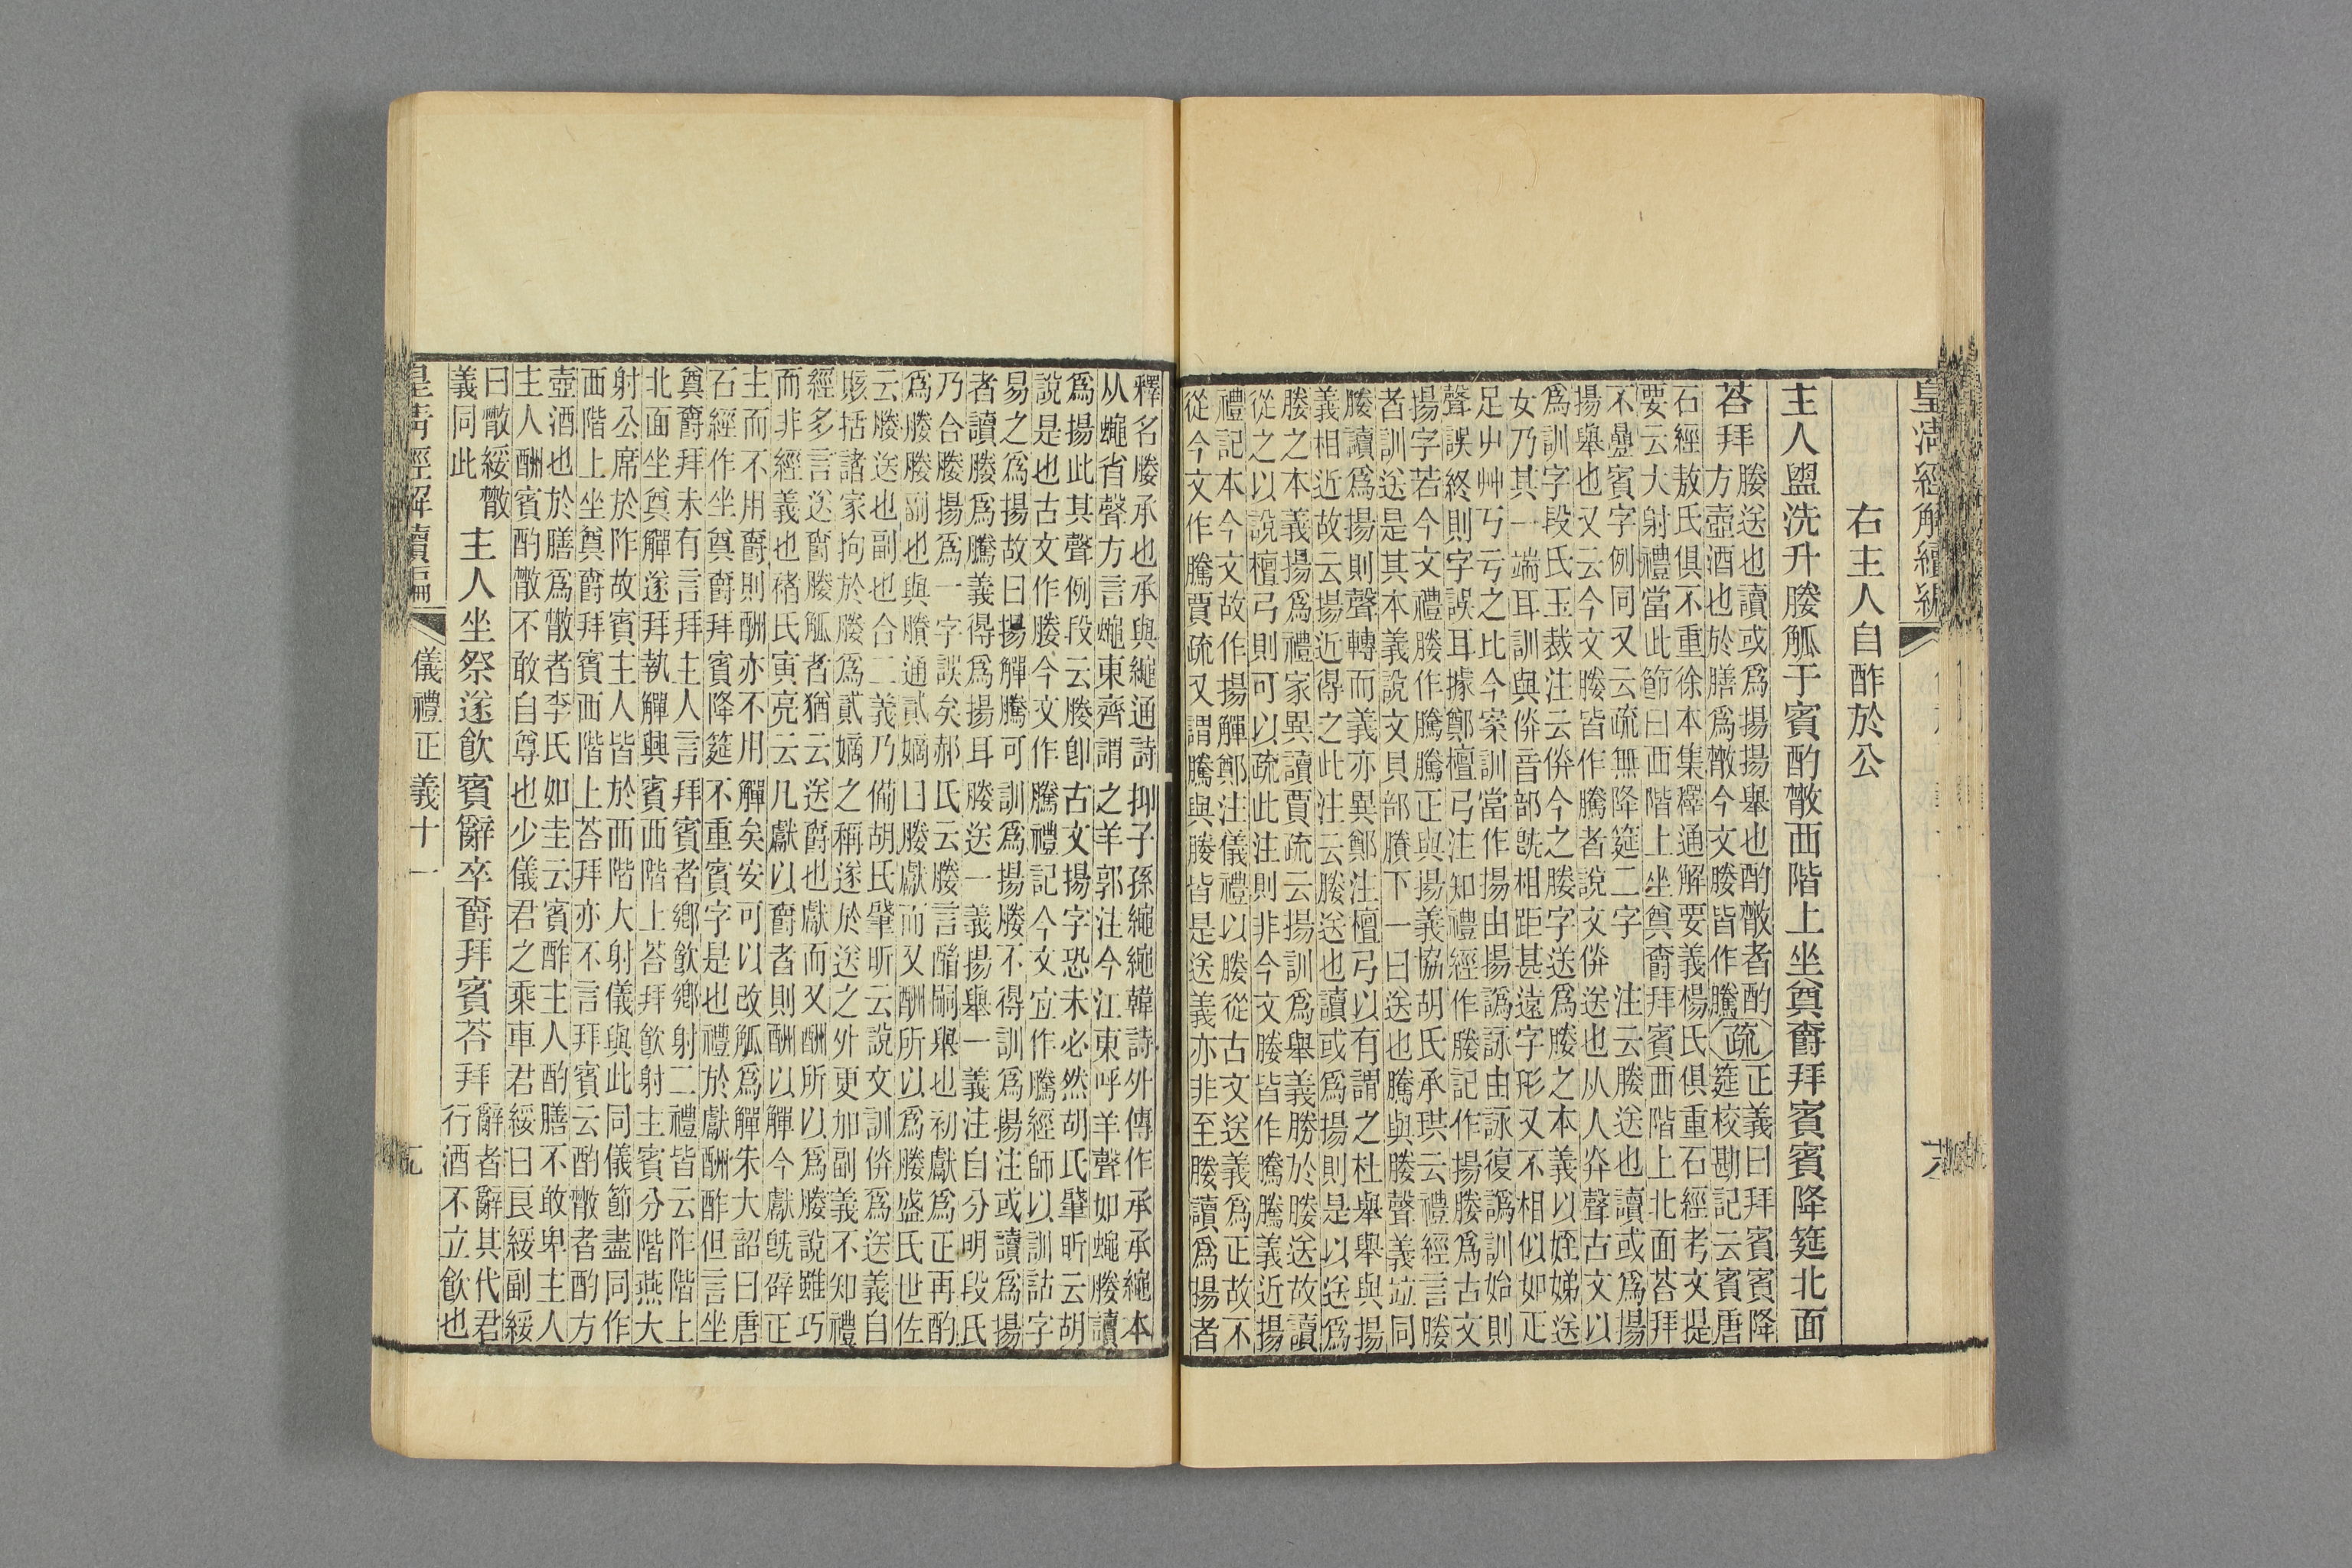 皇清經解續編
右主人自酢於公
主人盥洗升媵觚于賓酌散西階上坐奠爵拜賓賓降筵北面
荅拜
媵送也讀或爲揚揚舉也酌散者酌
方壺酒也於膳爲散今文媵皆作騰
疏
正義曰拜賓賓降
筵校勘記云賓唐
石經敖氏俱不重徐本集釋通解要義楊氏俱重石經考文提
要云大射禮當此節曰西階上坐奠爵拜賓西階上北面荅拜
不疊賓字例同又云疏無降筵二字 注云媵送也讀或爲揚
揚舉也又云今文媵皆作騰者說文㑞送也从人灷聲古文以
爲訓字段氏玉裁注云㑞今之媵字送爲媵之本義以姪娣送
女乃其一端耳訓與㑞音部旣相距甚遠字形又不相似如疋
足屮艸丂亏之比今案訓當作揚由揚譌詠由詠復譌訓始則
聲誤終則字誤耳據鄭檀弓注知禮經作媵記作揚媵爲古文
揚字若今文禮媵作騰騰正與揚義協胡氏承珙云禮經言媵
者訓送是其本義說文貝部賸下一曰送也騰與媵聲義竝同
媵讀爲揚則聲轉而義亦異鄭注檀弓以有謂之杜舉舉與揚
義相近故云揚近得之此注云媵送也讀或爲揚則是以送爲
媵之本義揚爲禮家異讀賈疏云揚訓爲舉義勝於媵送故讀
從之以說檀弓則可以疏此注則非今文媵皆作騰騰義近揚
禮記本今文故作揚觶鄭注儀禮以媵從古文送義爲正故不
從今文作騰賈疏又謂騰與媵皆是送義亦非至媵讀爲揚者
釋名媵承也承與繩通詩抑子孫繩繩韓詩外傳作承承繩本
从蠅省聲方言蠅東齊謂之羊郭注今江東呼羊聲如蠅媵讀
爲揚此其聲例段云媵卽古文揚字恐未必然胡氏肇昕云胡
說是也古文作媵今文作騰禮記今文宜作騰經師以訓詁字
易之爲揚故曰揚觶騰可訓爲揚媵不得訓爲揚注或讀爲揚
者讀媵爲騰義得爲揚耳媵送一義揚舉一義注自分明段氏
乃合媵揚爲一字誤矣郝氏云媵言醻嗣舉也初獻爲正再酌
爲媵媵副也與賸通貳嫡曰媵獻而又酬所以爲媵盛氏世佐
云媵送也副也合二義乃備胡氏肇昕云說文訓㑞爲送義自
賅括諸家拘於媵爲貳嫡之稱遂於送之外更加副義不知禮
經多言送爵媵觚者猶云送爵也獻而又酬所以爲媵說雖巧
而非經義也褚氏寅亮云凡獻以爵者則酬以觶今獻旣辟正
主而不用爵則酬亦不用觶矣安可以改觚爲觶朱大韶曰唐
石經作坐奠爵拜賓降筵不重賓字是也禮於獻酬酢但言坐
奠爵拜未有言拜主人言拜賓者鄉飲鄉射二禮皆云阼階上
北面坐奠觶遂拜執觶興賓西階上荅拜飲射主賓分階燕大
射公席於阼故賓主人皆於西階大射儀與此同儀節盡同作
西階上坐奠爵拜賓西階上荅拜亦不言拜賓云酌散者酌方
壺酒也於膳爲散者李氏如圭云賓酢主人酌膳不敢卑主人
主人酬賓酌散不敢自尊也少儀君之乘車君綏曰良綏副綏
曰散綏散
義同此
主人坐祭遂飲賓辭卒爵拜賓荅拜
辭者辭其代君
行酒不立飲也
皇清經解續編 儀禮正義十一